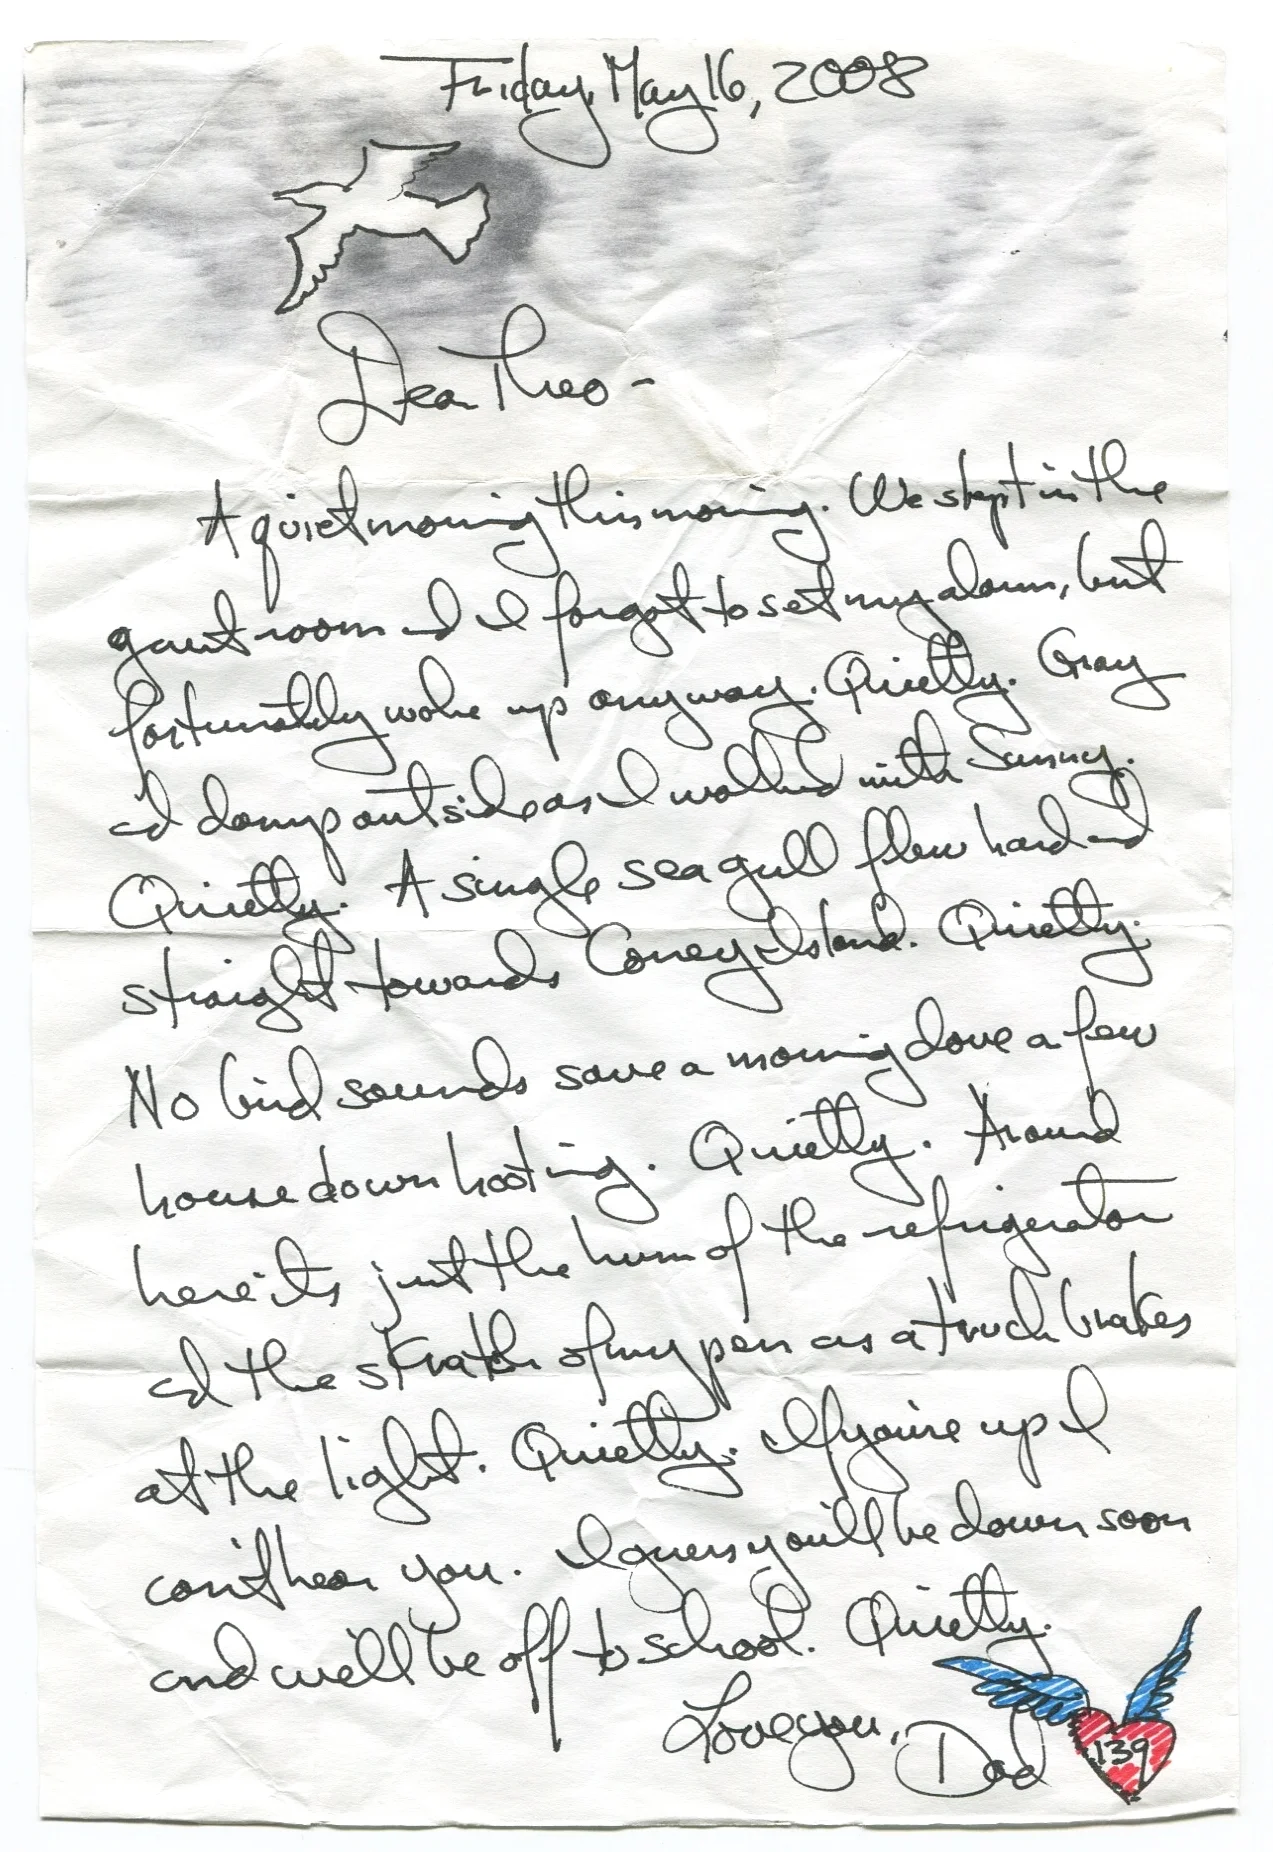 Friday, May 16, 2008
Dear Theo -
A quiet morning this morning. We slept in the
guest room and I forgot to set my alarm, but
fortunately woke up anyway. Quietly. Gray
and damp outside as I walked with Sunny.
Quietly. A single seagull flew hard and
straight towards Coney Island. Quietly.
No bird sounds save a morning dove a few
house down hooting. Quietly. Around
here it's just the hum of the refrigerator
and the skratch of my pen as a truck brakes
at the light. Quietly. If you're up I
can't hear you. I guess you'll be down soon
and we'll be off to school. Quietly.
Love you,
Dad
139